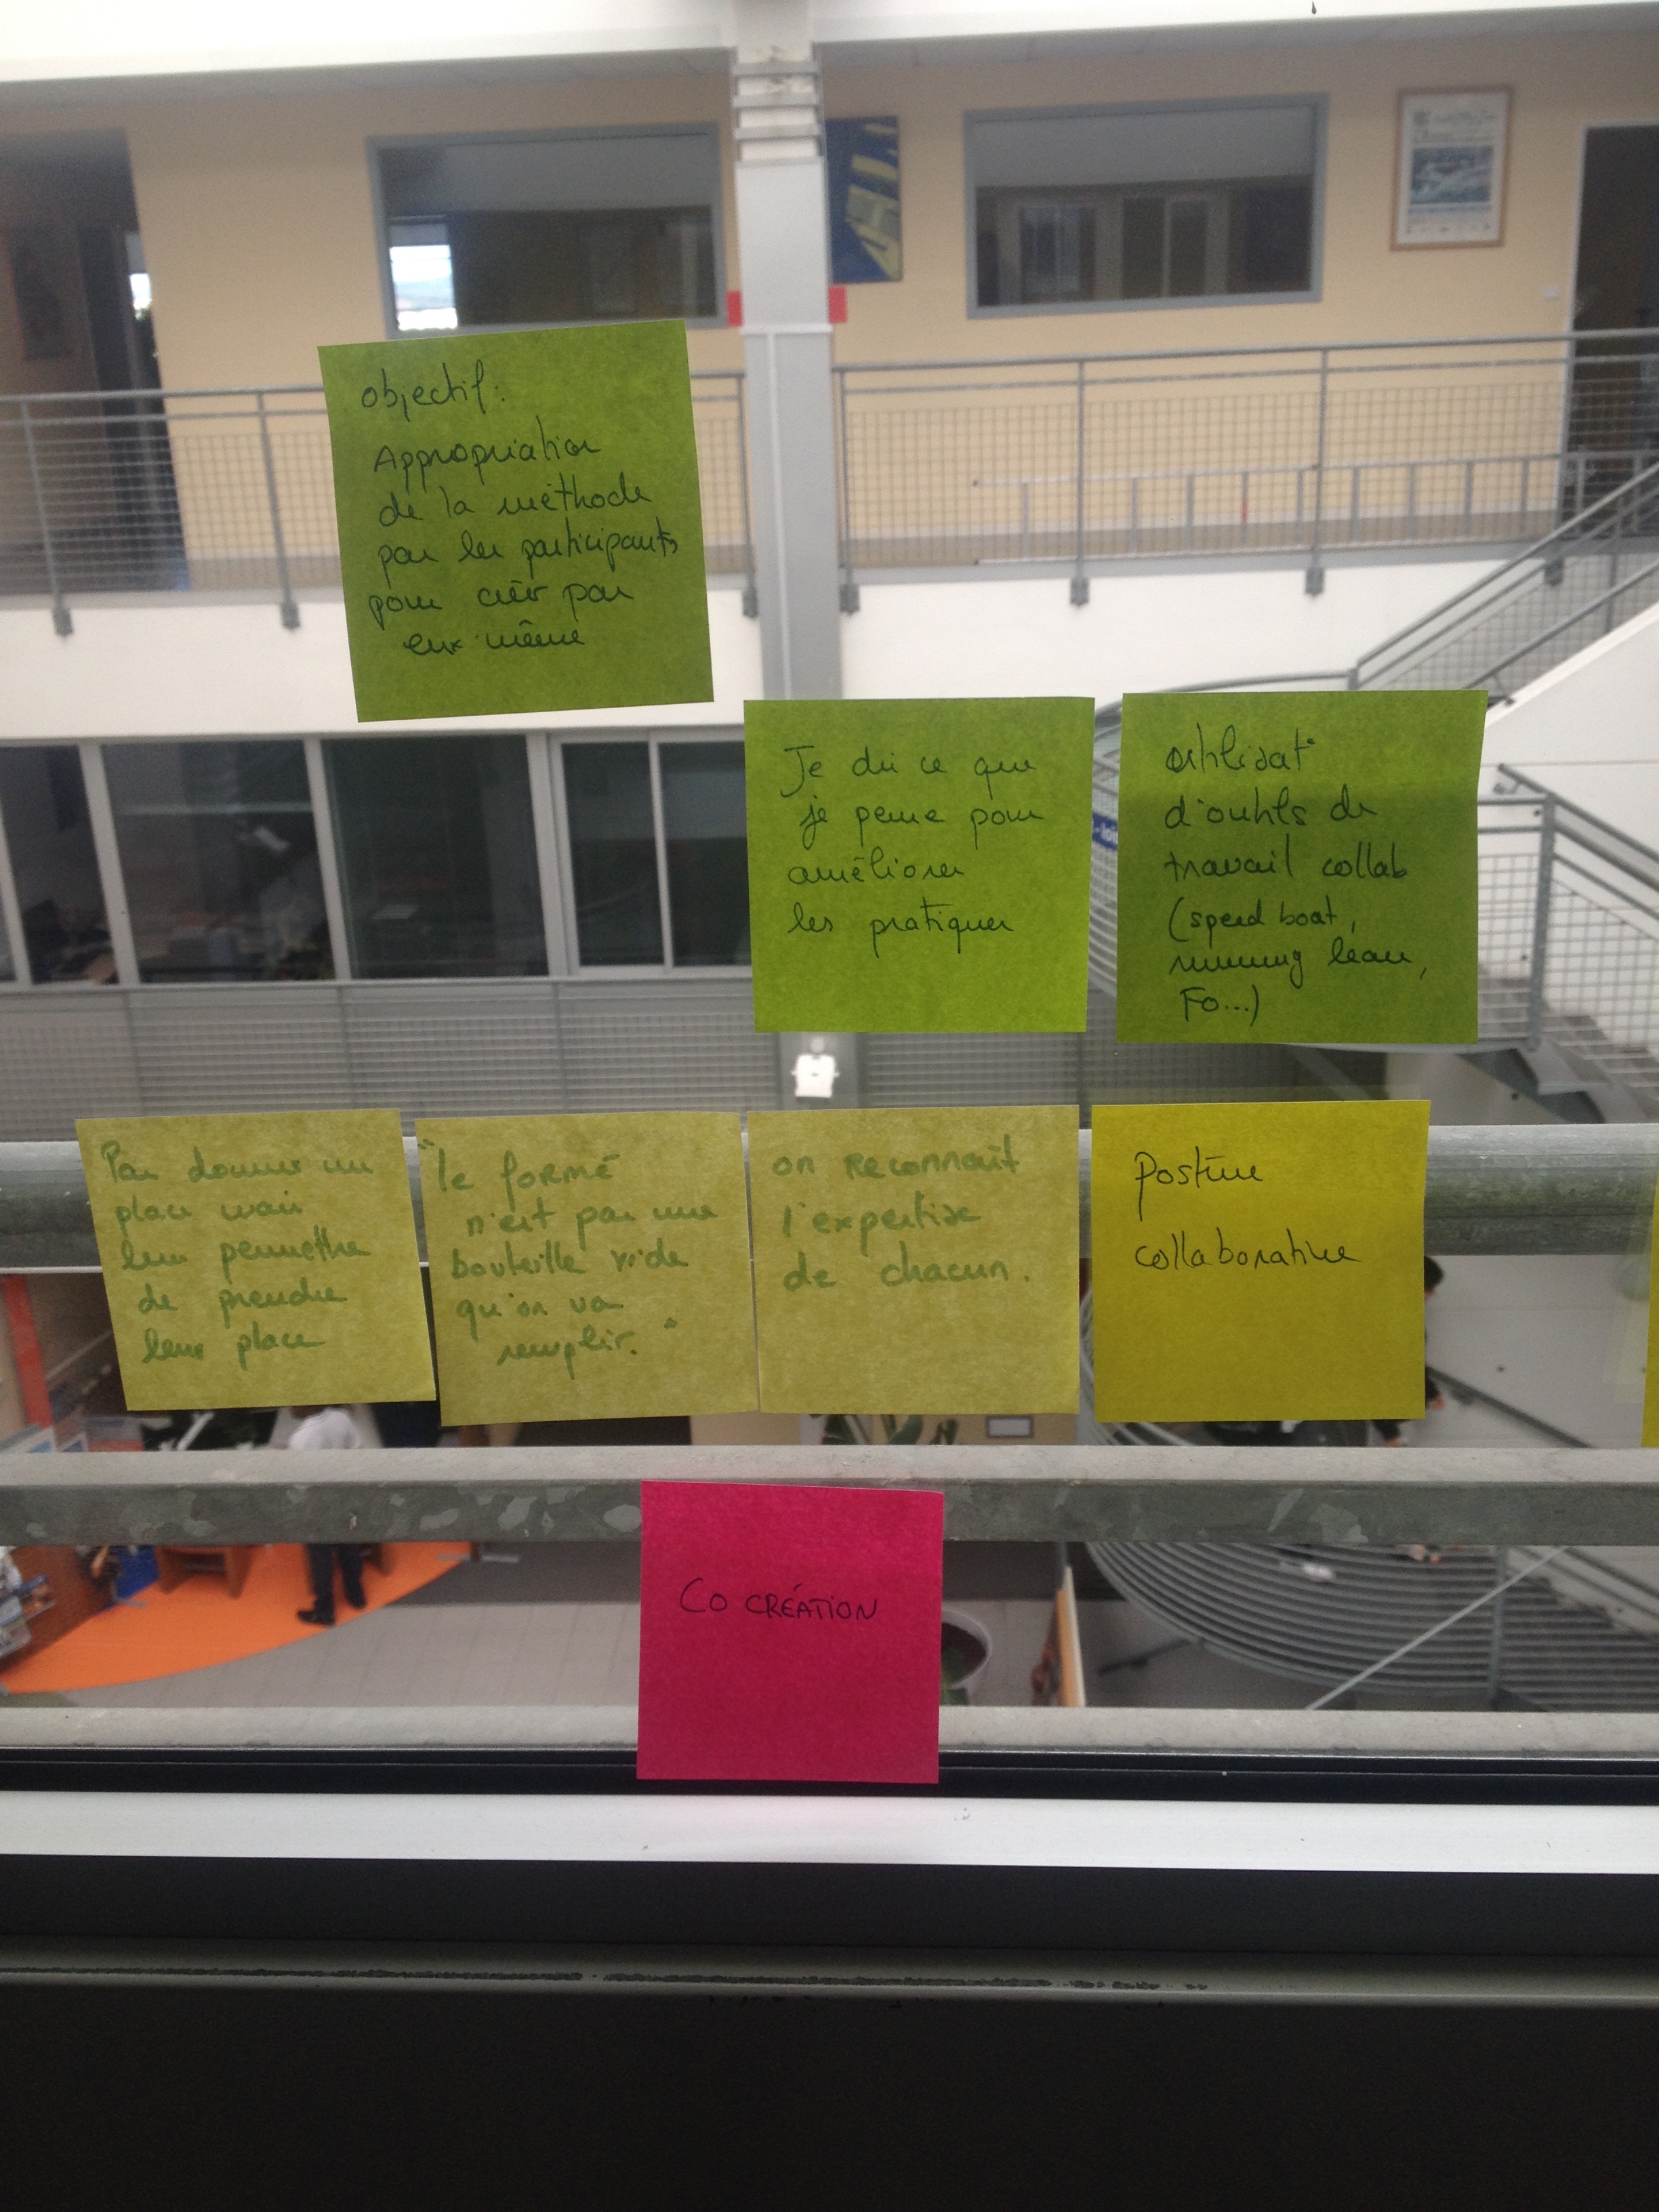 objectif:
Appropriation
de la méthode
par les participants
pour créer par
eux même
Je dis ce que
je pense pour
améliorer
les pratiques
utilisat°
d'outils de
travail collab
(speed boat,
running lean,
FO...)
Pas donner une
place mais
leur permettre
de prendre
leur place
"le formé
n'est pas une
bouteille vide
qu'on va
remplir."
on reconnait
l'expertise
de chacun.
Posture
collaborative
CO CRÉATION